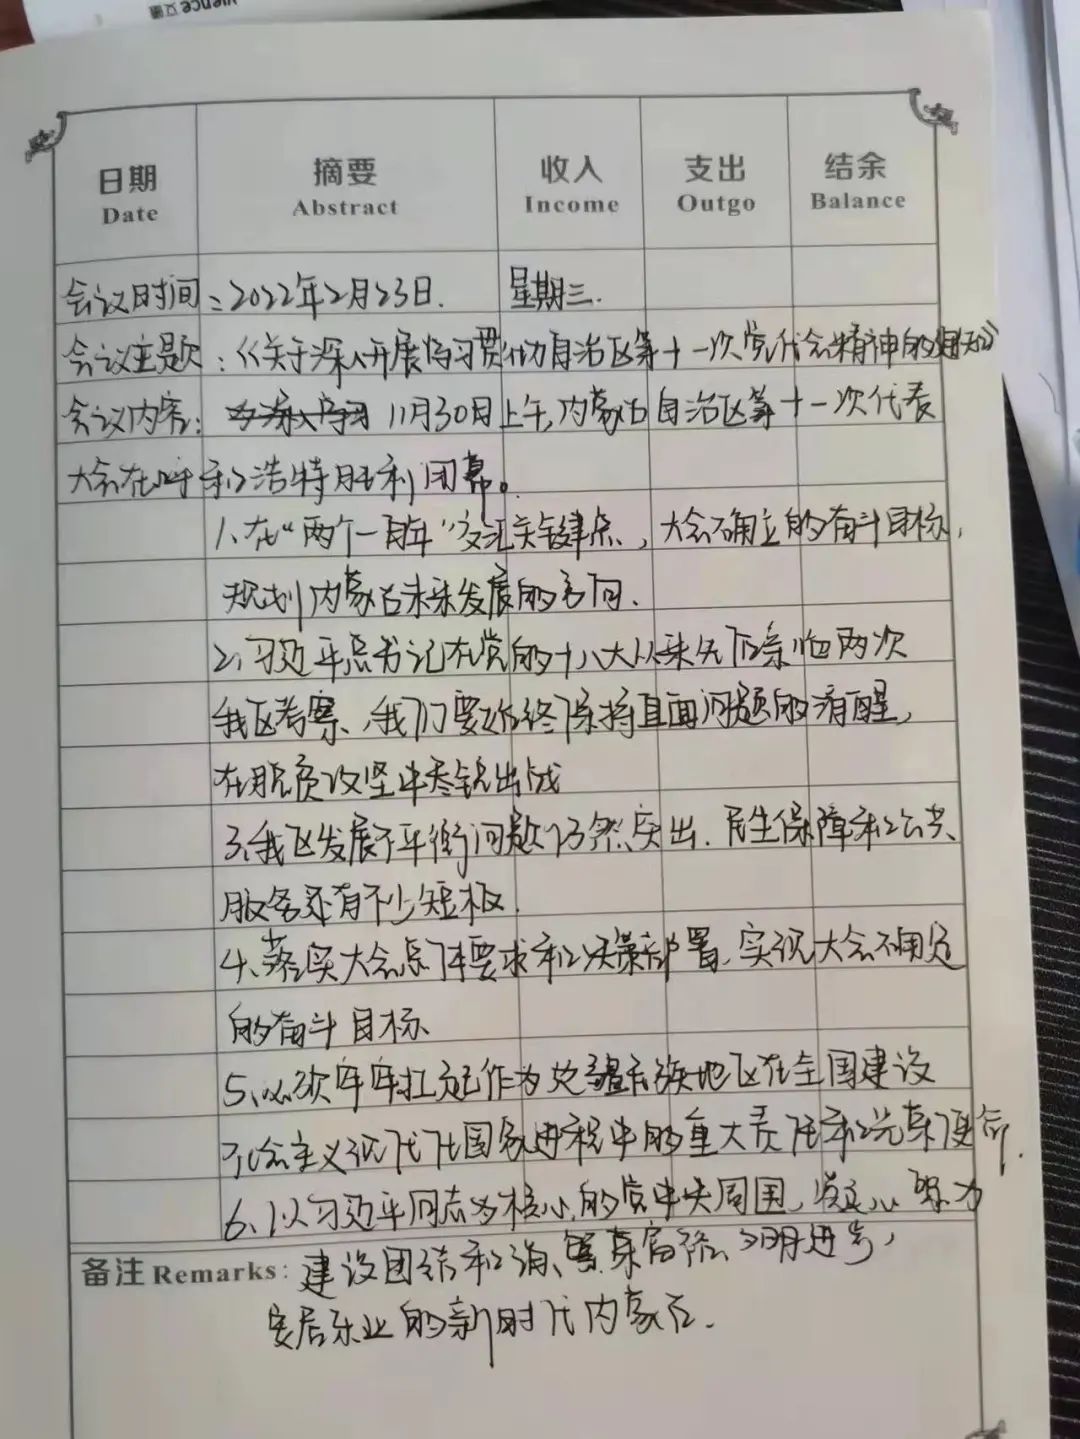 日期 摘要 收入 支出 结余
Date Abstract Income Outgo Balance
会议时间：2022年2月23日. 星期三.
会议主题：《关于深入开展学习贯彻自治区第十一次党代会精神的通知》
会议内容： 11月30日上午,内蒙古自治区第十一次代表
大会在呼和浩特胜利闭幕。
1、在“两个一百年”交汇关键点，大会确立的奋斗目标，
规划内蒙古未来发展的方向.
2、习近平总书记在党的十八大以来先后亲临两次
我区考察、我们要始终保持直面问题的清醒，
在脱贫攻坚中尽锐出战
3、我区发展不平衡问题仍然突出.民生保障和公共
服务还有不少短板.
4、落实大会总体要求和决策部署，实现大会确定
的奋斗目标、
5、必须牢牢扛起作为边疆民族地区在全国建设
社会主义现代化国家进程中的重大责任和光荣使命.
6、以习近平同志为核心的党中央周围，凝心聚力
备注 Remarks: 建设团结和谐、繁荣富裕、文明进步，
安居乐业的新时代内蒙古.